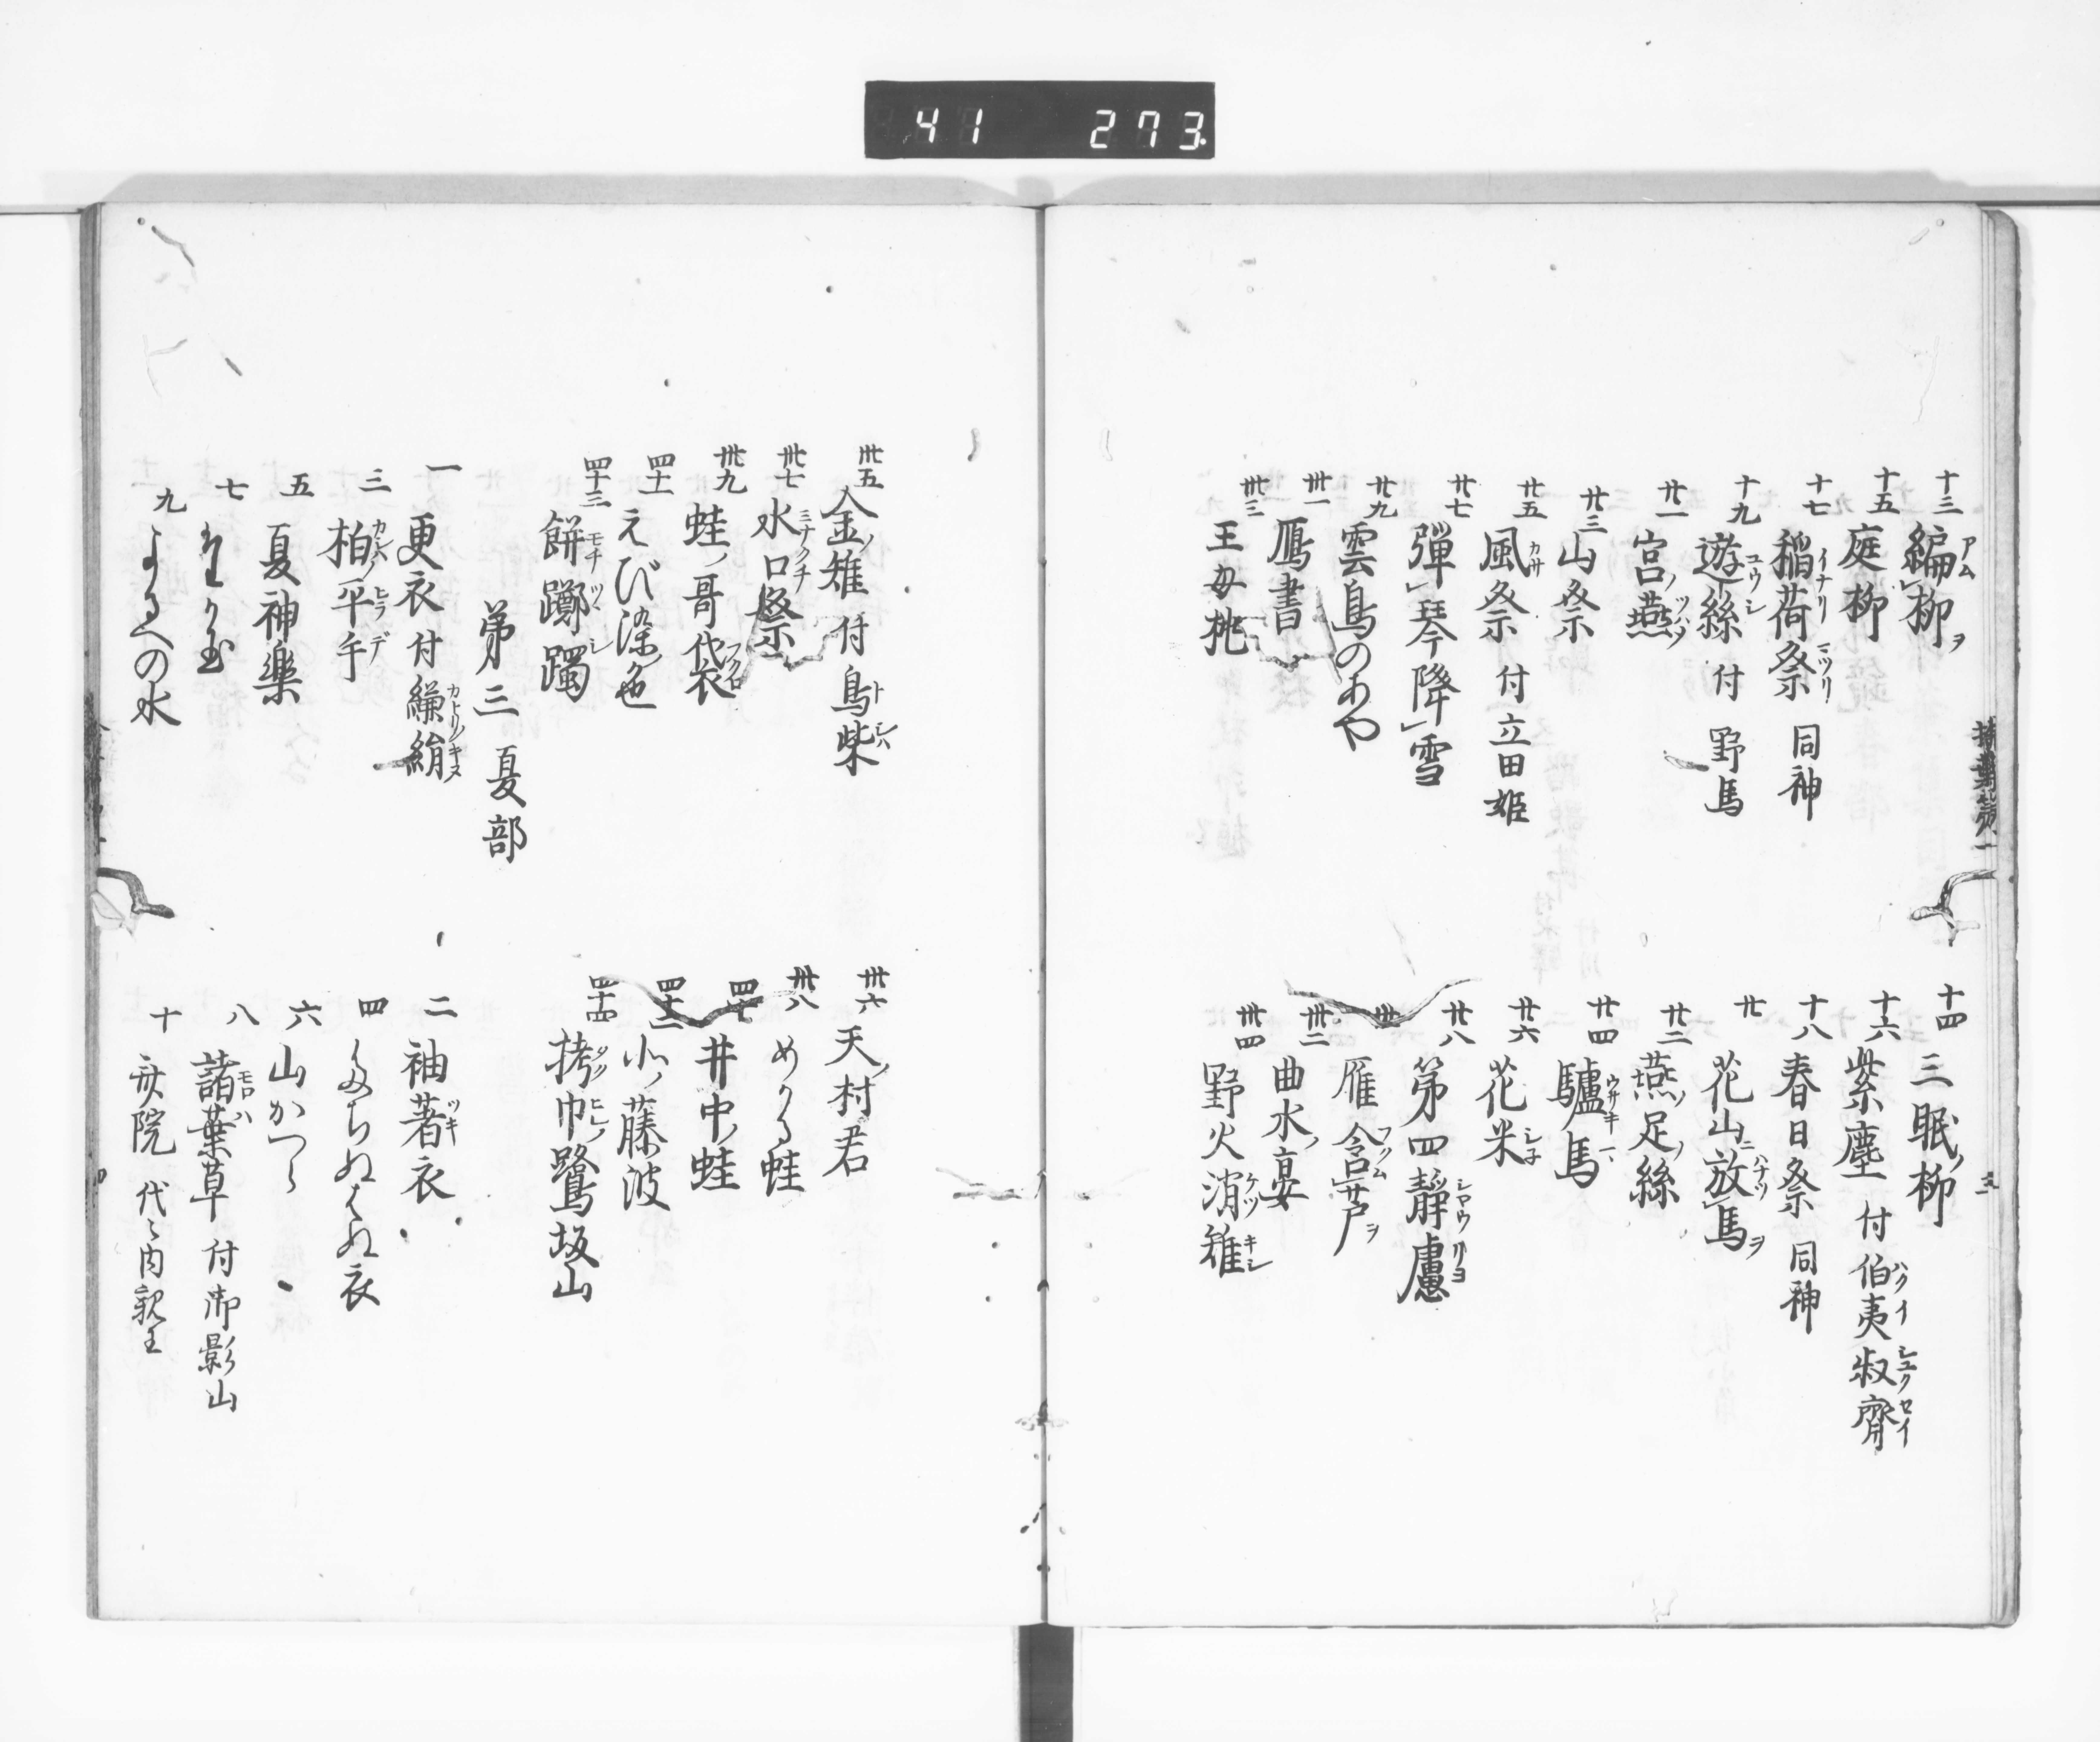 41 273
十三 編柳ヲ
十四 三眠ノ柳
十五 庭柳
十六 紫塵 付伯夷叔齊
十七 稲荷祭 同神
十八 春日祭 同神
十九 遊絲 付野馬
廿 花山ニ放馬ヲ
廿一 宮ノ燕
廿二 燕ノ足ノ絲
廿三 山祭
廿四 驢馬
廿五 風祭 付立田姫
廿六 花米
廿七 彈琴降雪
廿八 第四靜慮
廿九 雲鳥のあや
卅 雁含芦ヲ
卅一 鴈書
卅二 曲水ノ宴
卅三 王母桃
卅四 野火消雉
卅五 金ノ雉 付鳥柴
卅六 天ノ村君
卅七 水口祭
卅八 めかる蛙
卅九 蛙ノ哥袋
四十 井中ノ蛙
四十一 えび染ノ色
四十二 小ノ藤波
四十三 餅躑躅
四十四 栲巾ノ鷺坂山
第三 夏部
一 更衣 付縑絹
二 袖著衣
三 柏ノ平手
四 たちぬはぬ衣
五 夏神樂
六 山かつら
七
八 諸葉草 付御影山
九 よるへの水
十 斎院 代々内親王